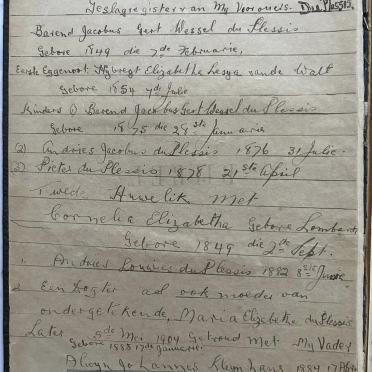 Geslagregister van My Voorouers. Du Plessis.
Barend Jacobus Gert Wessel du Plessis
Gebore 1849 die 7de Februarie,
Eerste Eggenoot. Elizabetha van de Walt
Gebore 1854 7de Julie
Kinders (1) Barend Jacobus Gert Wessel du Plessis
Gebore 1875 die 29ste Januarie
(2) Andries Jacobus du Plessis 1876 31 Julie.
(3) Pieter du Plessis 1878 21ste April
Huwelik Met
Cornelia Elizabetha Gebore Lombard
Gebore 1849 die 2de Sept.
1. Andries du Plessis 1882 8ste
2. Een Dogter ook moeder van
ondergetekende, Maria Elizabetha du Plessis
Later 5de Mei 1904 Getroud Met My Vader
Gebore 1885 17de Januarie
Alwyn Johannes 1884